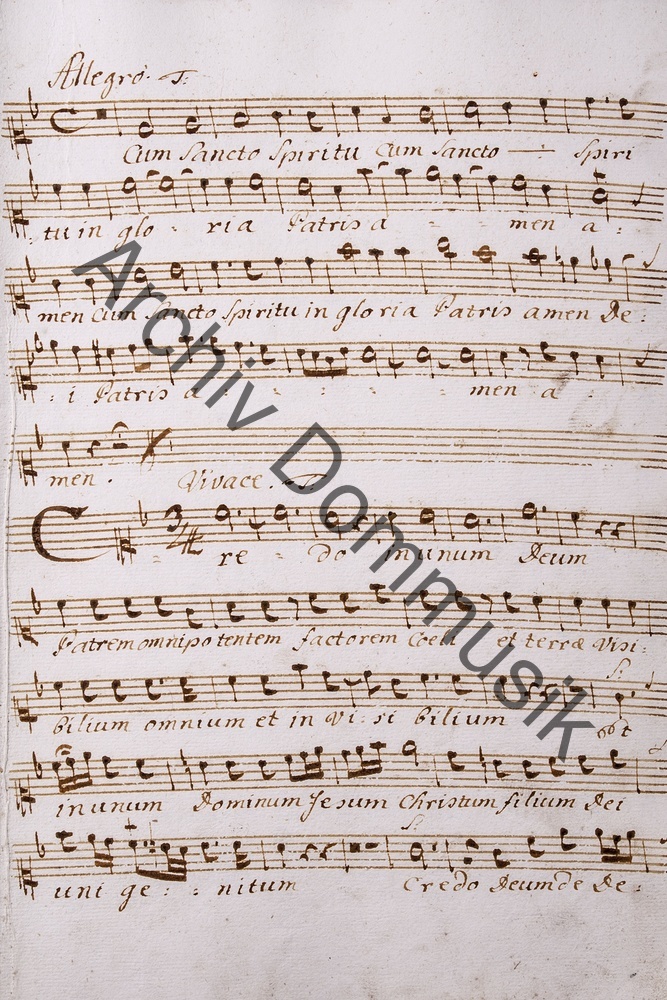 Allegro. T:
Cum Sancto Spiritu Cum Sancto Spiri
tu in glo - ria Patris a - - - men a:
men Cum Sancto Spiritu in gloria Patris amen De:
: i Patris a - - - - men a -
men. Vivace. T:
C re - do in unum Deum
Patrem omnipotentem factorem Coeli et terræ Visi:
S:
bilium omnium et in Vi: si bilium et
in unum Dominum Jesum Christum filium Dei
S:
uni ge : : nitum Credo Deum de De:
Archiv Dommusik